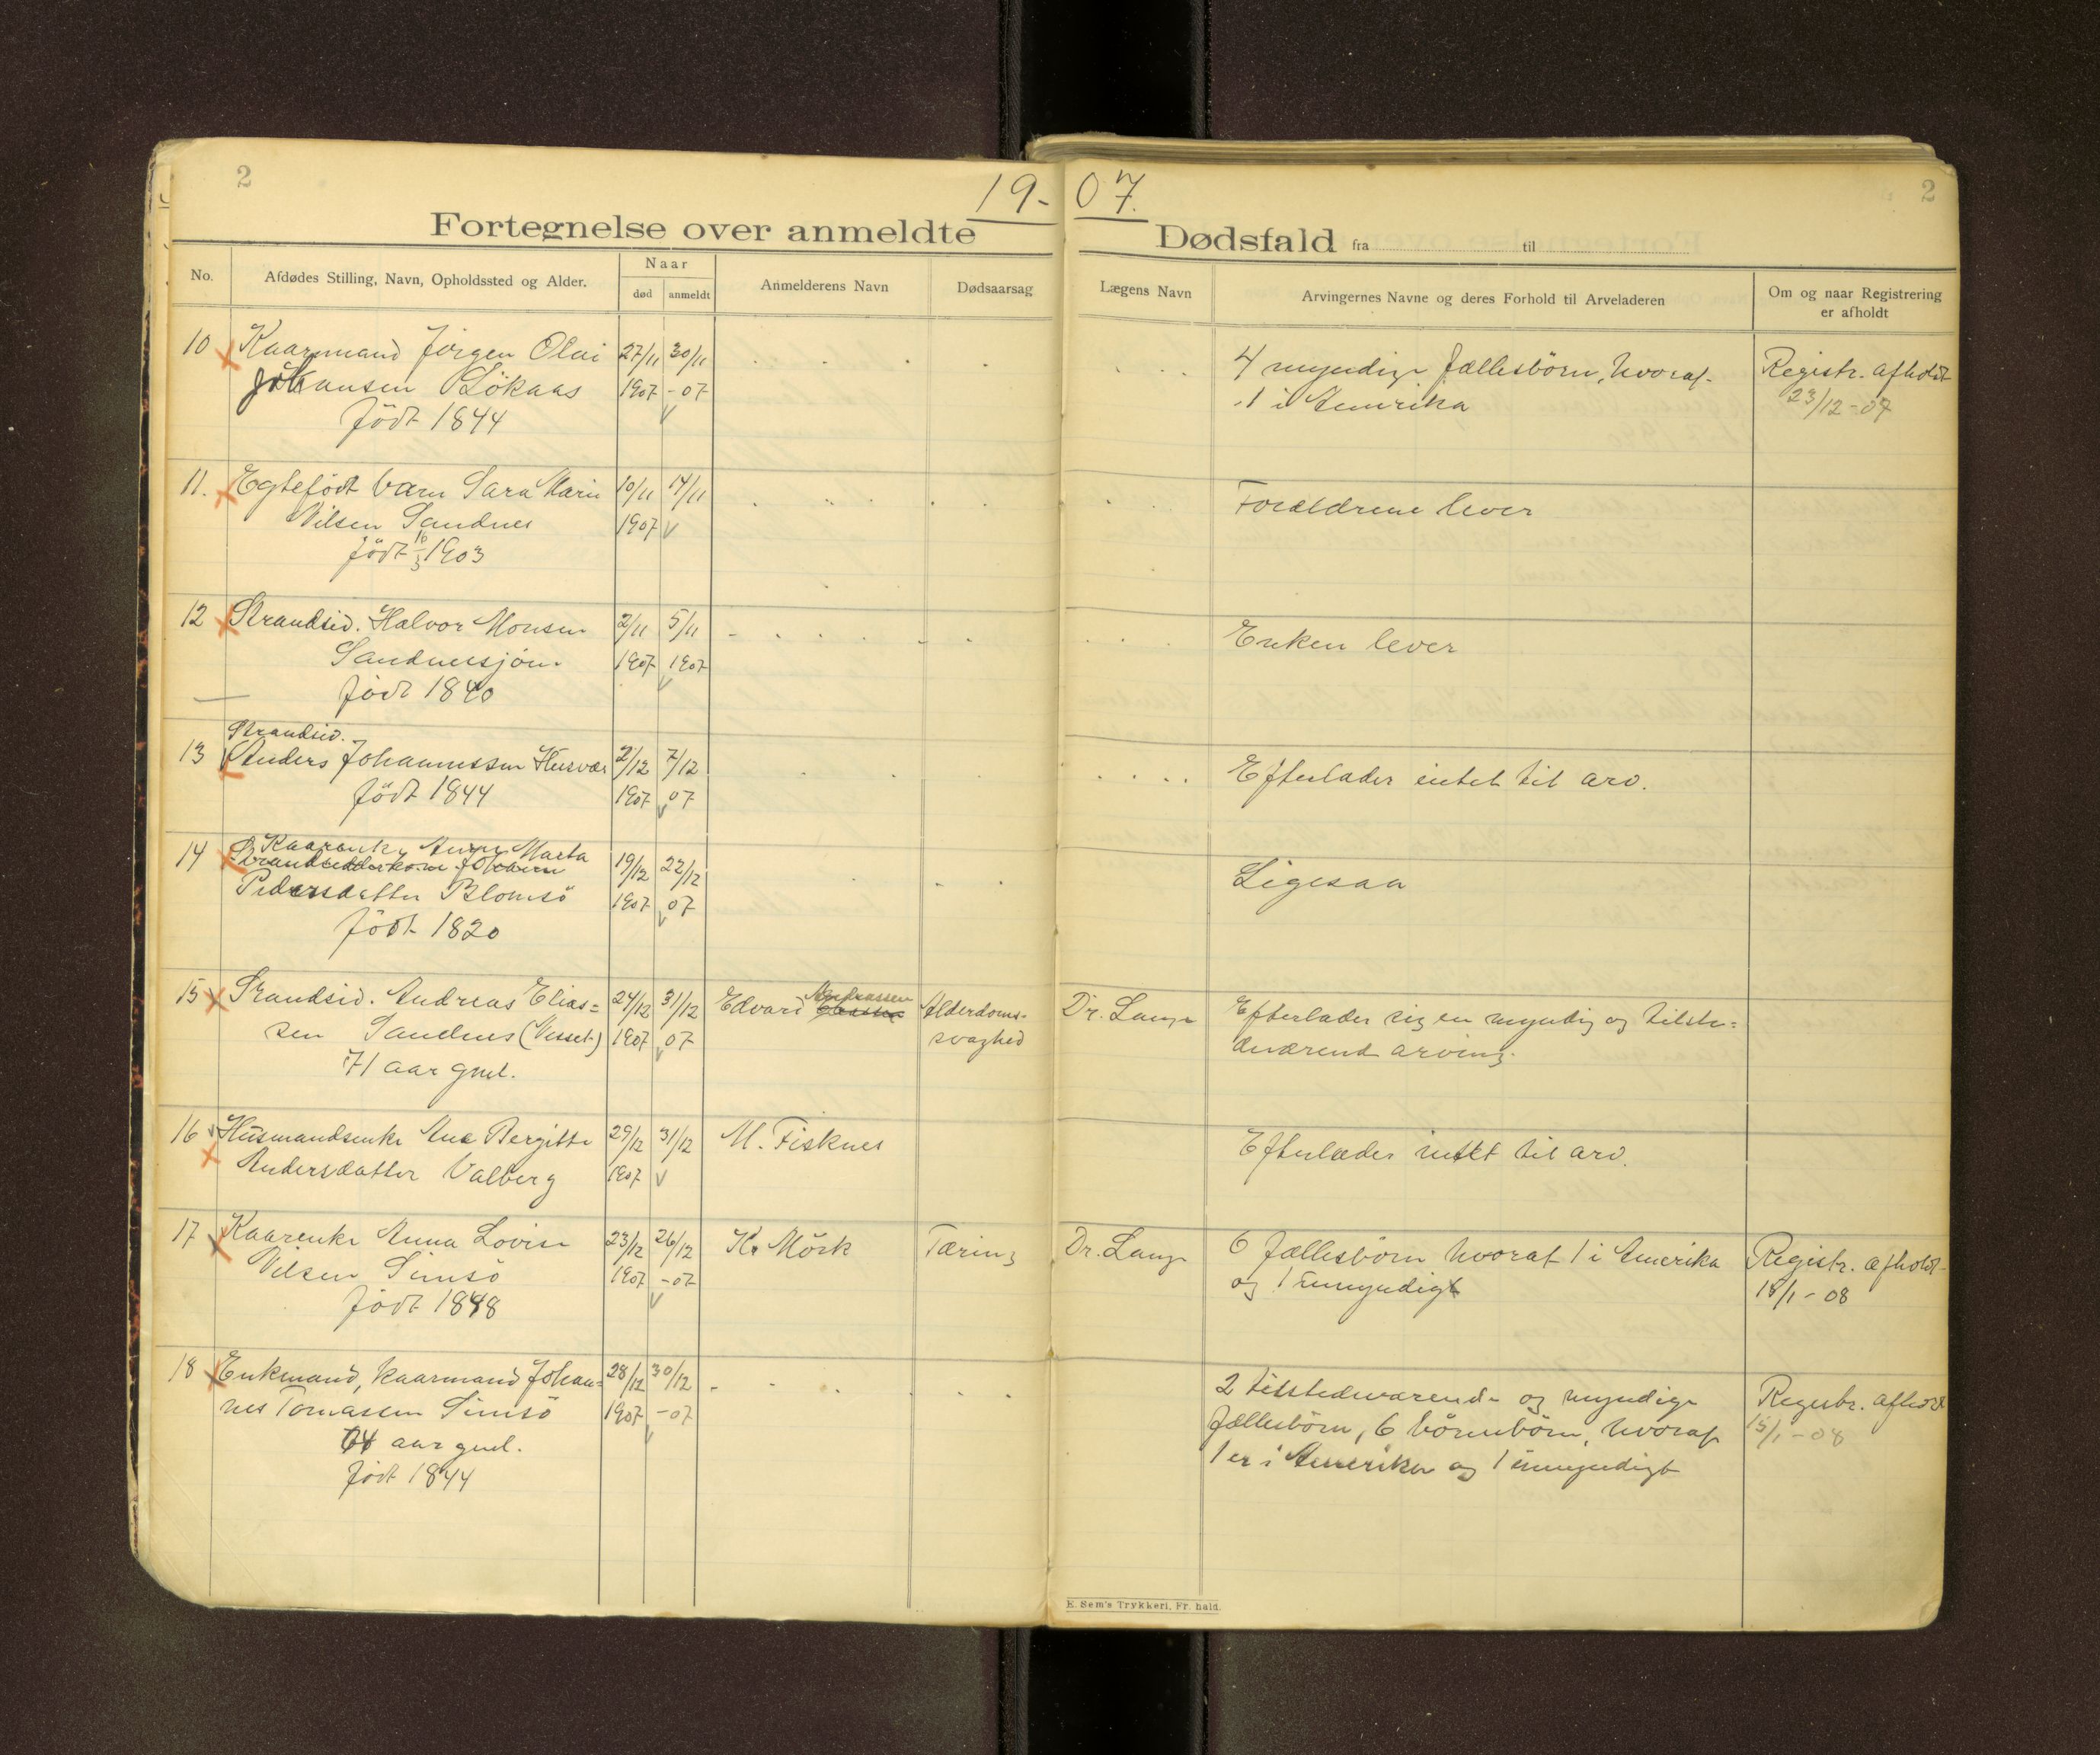 2
19-07.
2
Fortegnelse over anmeldte Dødsfald fra til
No.
Afdødes Stilling, Navn, Opholdssted og Alder.
Naar
død
anmeldt
Anmelderens Navn
Dødsaarsag
Lægens Navn
Arvingernes Navne og deres Forhold til Arveladeren
Om og naar Registrering
er afholdt
10 Kaarmand Jörgen Olai 27/11 30/11 4 myndige fællesbörn, hvoraf Registr. afholdt
Johansen Lökaas 1907 -07 1 i Amerika 23/12-07
födt 1844
11. Egtefödt barn Sara Marie 10/11 14/11 Forældrene lever
Nilsen Sandnes 1907
födt 16/3 1903
12 Strandsid. Halvor Monsen 2/11 5/11 Enken lever
Sandnessjöen 1907 1907
födt 1840
Strandsid.
13 Anders Johannessen Husvær 2/12 7/12 Efterlader intet til arv.
födt 1844 1907 07
14 Kaarenke Anne Marta 19/12 22/12 Ligesaa
Pedersdatter Blomsö 1907 07
födt 1820
15 Strandsid. Andreas Elias= 24/12 31/12 Edvard Andreassen Alderdoms- Dr. Lange Efterlader sig en myndig og tilste=
sen Sandnes 1907 07 svaghed deværend arving.
71 aar gml.
16 Husmandsenke Ane Bergitte 29/12 31/12 M. Fisknes Efterlader intet til arv.
Andersdatter Valberg 1907
17 Kaarenke Anna Lovise 23/12 26/12 K. Mörk Tæring Dr. Lange 6 fællesbörn hvoraf 1 i Amerika Registr. afholdt
Nilsen Simsö 1907 -07 og 1 umyndigt 15/1-08
födt 1848
18 Enkemand, kaarmand Johan= 28/12 30/12 2 tilstedeværende og myndige Registr. afholdt
nes Tomassen Simsö 1907 -07 fællesbörn, 6 börnebörn, hvoraf 15/1-08
64 aar gml. 1 er i Amerika og 1 umyndigt
födt 1844
E. Sem's Trykkeri, Fr. hald.